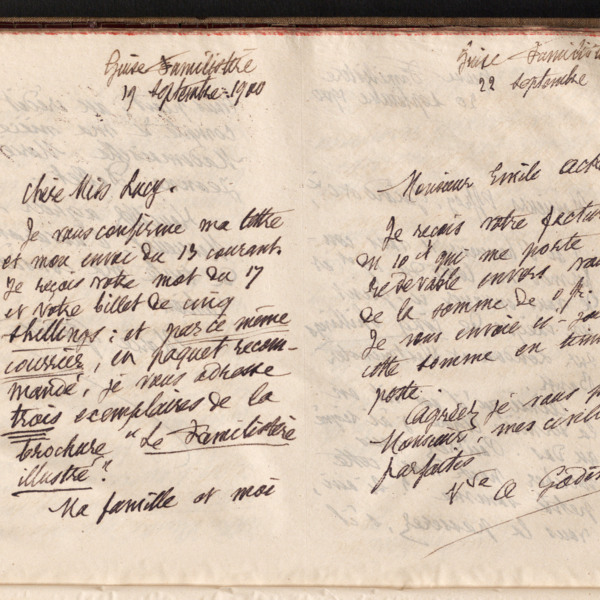 Guise Familistère
19 Septembre 1900
Chère Miss Lucy.
Je vous confirme ma lettre
et mon envoi du 13 courant.
Je reçois votre mot du 17
et votre billet de cinq
shillings; et par ce même
courrier, en paquet recom-
mandé, je vous adresse
trois exemplaires de la
brochure "Le Familistère
illustré".
Ma famille et moi
Guise Familistè
22 Septembre
Monsieur Emile
Je reçois votre factur
du 10 ct qui me porte
redevable envers vou
de la somme de fr.
Je vous envoie ci-joi
cette somme en tim
poste.
Agréez je vous
Monsieur, mes civili
parfaites
Vve A. Godin